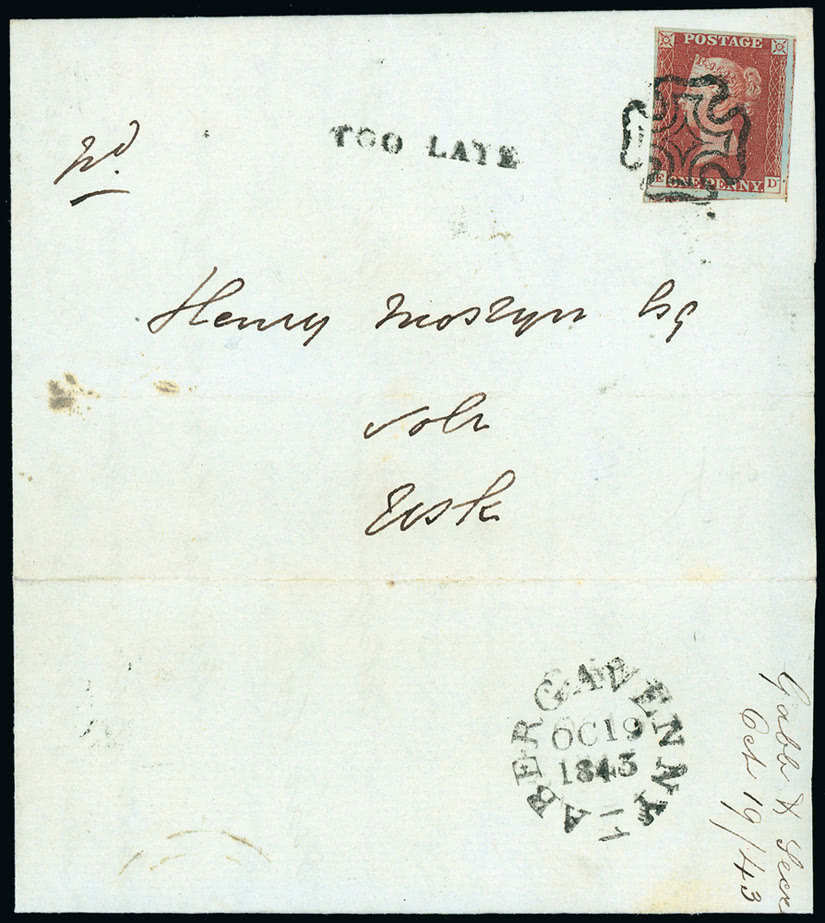 POSTAGE
E ONE PENNY D
pd.
TOO LATE
Henry Mostyn Esq
Solr
Usk
ABERGAVENNY
OC 19
1843
Gabb & Secr
Oct 19/43